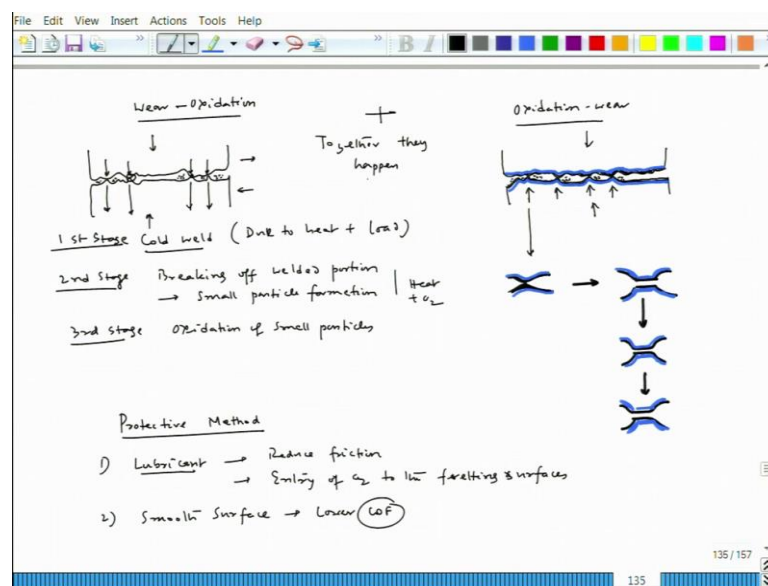 File Edit View Insert Actions Tools Help
B I
Wear - Oxidation
+
Together they
happen
Oxidation - wear
1st Stage Cold weld (Due to heat + load)
2nd Stage Breaking off welded portion
→ Small particle formation | Heat + O2
3rd Stage Oxidation of small particles
Protective Method
1) Lubricant → Reduce friction
→ Entry of O2 to the fretting surfaces
2) Smooth Surface → Lower COF
135 / 157
135